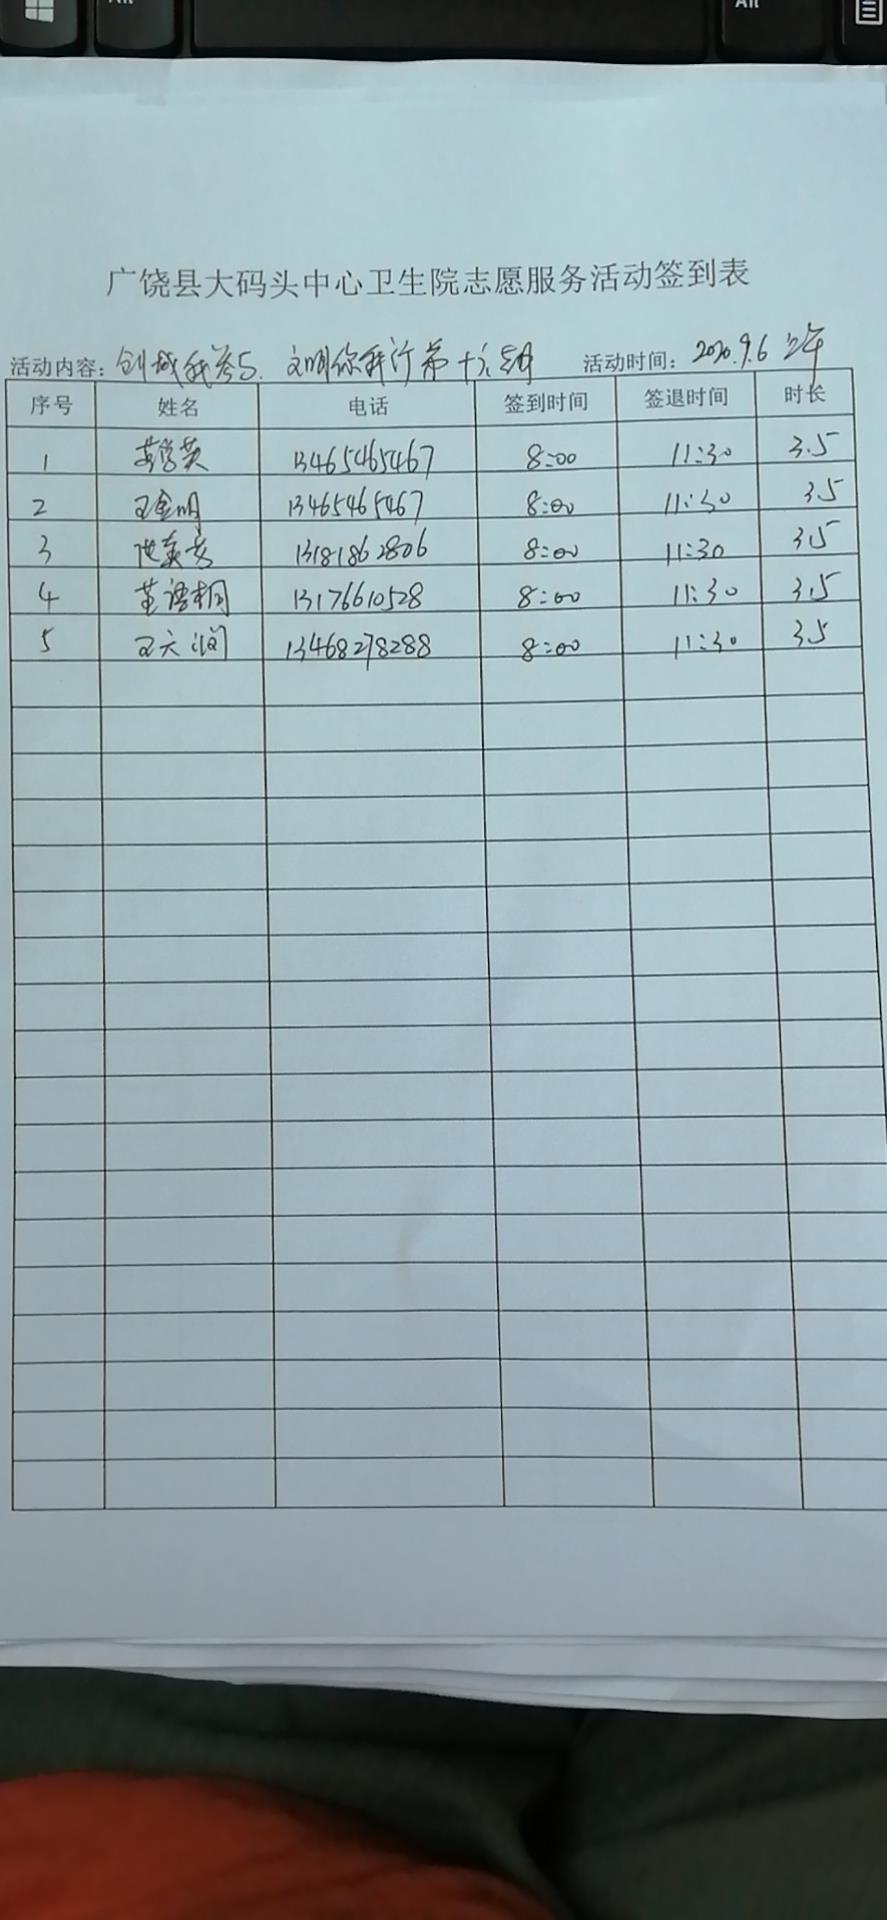 Alt
Alt
广饶县大码头中心卫生院志愿服务活动签到表
活动内容: 创城我参与. 文明你我行第十六期 活动时间: 2020.9.6 上午
序号 姓名 电话 签到时间 签退时间 时长
1 13465465467 8:00 11:30 3.5
2 王金明 13465465467 8:00 11:30 3.5
3 13181862806 8:00 11:30 3.5
4 董语桐 13176610528 8:00 11:30 3.5
5 王六润 13468278288 8:00 11:30 3.5